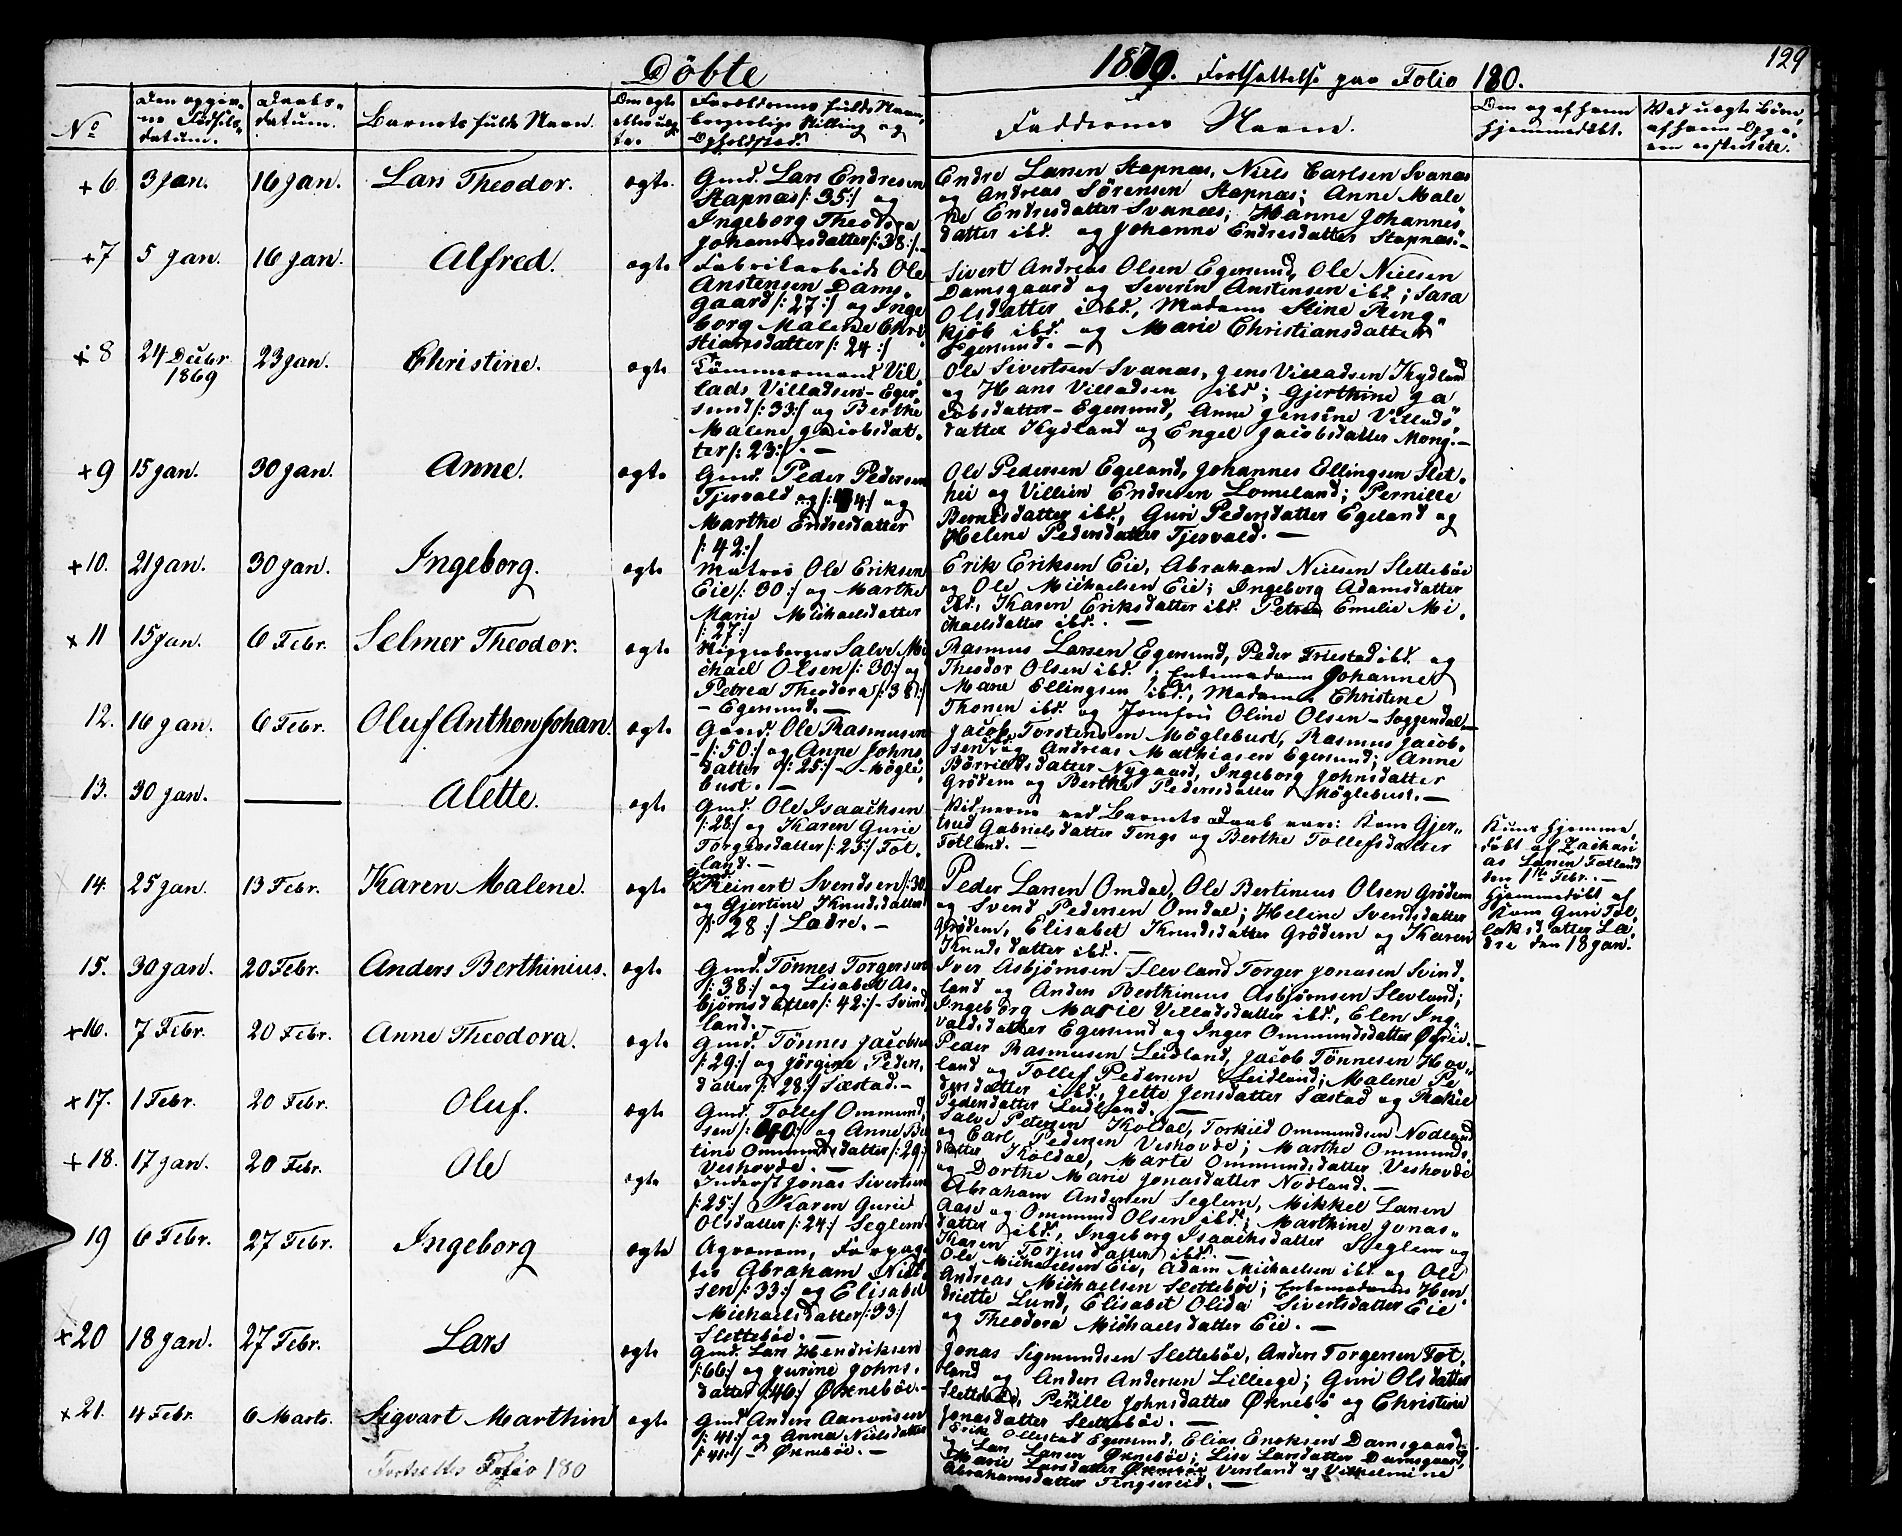 Döbte 1870. Fortsættelse paa Folio 180. 129
No
Den opgiv-
ne Födsels-
datum.
Daabs-
datum.
Barnets fulde Navn.
Om ægte
eller uæg-
te.
Forældrenes fulde Navn,
borgerlige Stilling og
Opholdssted.
Faddernes Navn.
Om og af hvem
hjemmedöbt.
Ved uægte Börn,
af hvem Opga-
ven er
+6 3 Jan. 16 Jan. Lars Theodor. ægte.
Gmd. Lars Endresen
Stapnæs /:35:/ og
Ingeborg Theodora
Johannesdatter /:38:/.-
Endre Larsen Stapnæs, Niels Carlsen Svanæs
og Andreas Sörensen Stapnæs; Anne Male
ne Endresdatter Svanæs, Hanne Johannes-
datter ibd. og Johanne Endresdatter Stapnæs.-
+7 5 Jan. 16 Jan. Alfred. ægte
Fabrikarbeid. Ole
Anstensen Dams-
gaard /:27:/ og Inge
borg Malene Chri
stiansdatter /:24:/
Sivert Andreas Olsen Egersund, Ole Nielsen
Damsgaard og Severin Anstensen ibd; Sara
Olsdatter ibd., Madam Stine Ring-
kjöb ibd. og Marie Christiansdatter
Egersund. -
+8 24 Decbr 1869 23 Jan. Christine. ægte
Tömmermand Vil-
lads Villadsen - Eger-
sund /:33:/ og Berthe
Malene Jacobsdat-
ter /:23:/. -
Ole Sivertsen Svanæs, Jens Villadsen Kydland
og Hans Villadsen ibd; Gjerthine Ja
cobsdatter - Egersund, Anne Jensine Villads-
datter Kydland og Engel Jacobsdatter Mong. -
+9 15 Jan. 30 Jan. Anne. ægte
Gmd. Peder Pedersen
Tjersvald og /:44:/ og
Marthe Endresdatter
/:42:/
Ole Pedersen Egeland, Johannes Ellingsen Slet-
hei og Villien Endresen Lomeland; Pernille
Berntsdatter ibd, Guri Pedersdatter Egeland og
Helene Pedersdatter Tjersvald. -
+10. 21 Jan. 30 Jan. Ingeborg. ægte
Matros Ole Eriksen
Eie /:30:/ og Marthe
Marie Michaelsdatter
/:27:/
Erik Eriksen Eie, Abraham Nielsen Sletteböe
og Ole Michaelsen Eie; Ingeborg Adamsdatter
ibd., Karen Eriksdatter ibd. Petrea Emelie Mi-
chaelsdatter ibd. -
x 11 15 Jan. 6 Febr. Selmer Theodor. ægte
Salve Mi
chael Olsen /:30:/ og
Petrea Theodora /:38:/
- Egersund. -
Rasmus Larsen Egersund, Peder Friestad ibd. og
Theodor Olsen ibd.; Enkemadam Johanne
Marie Ellingsen ibd., Madam Christine
Thonen ibd. og Jomfru Oline Olsen - Soggendal -
12. 16 Jan. 6 Febr. Oluf Anthon Johan. ægte
Gaard. Ole Rasmusen
- /:50:/ og Anne Johns
datter /:25:/ - Mögle-
bust. -
Jacob Torstensen Möglebust, Rasmus Jacob-
sen ibd. og Andreas Mathiasen Egersund; Anne
Börrildsdatter Nygaard, Ingeborg Johnsdatter
Grödem og Berthe Pedersdatter Möglebust. -
13. 30 Jan. — Alette. ægte
Gmd. Ole Isaachsen
/:28:/ og Karen Gurie
Torgersdatter /:25:/ Fot-
land. -
Vidnerne ved Barnets Daab vare: Kone Gjer-
trud Gabrielsdatter Tengs og Berthe Tollefsdatter
Fotland. -
Kun hjemme-
döbt af Zachari
as Larsen Fotland
den 1ste Febr. -
14. 25 Jan. 13 Febr. Karen Malene. ægte
Gmd. Reinert Svendsen /:30
og Gjertine Knudsdatter
/:28:/ Lædre. -
Peder Larsen Omdal, Ole Bertinius Olsen Grödem
og Svend Pedersen Omdal; Heline Svendsdatter
Grödem, Elisabet Knudsdatter Grödem og Karen
Knudsdatter ibd. -
Hjemmedöbt af
Kone Guri Tol-
laksdatter Læ-
dre den 18 Jan.
15. 30 Jan. 20 Febr. Anders Berthinius. ægte
Gmd. Tönnes Torgersen
/:38:/ og Lisabet As-
björnsdatter /:42:/ - Svind
land.
Iver Asbjörnsen Slevland, Torger Jonasen Svind-
land og Anders Berthinius Asbjörnsen Slevland;
Ingeborg Marie Villadsdatter ibd., Elen Ing-
valdsdatter Egersund og Inger Ommundsdatter
+16. 7 Febr. 20 Febr. Anne Theodora. ægte
Gmd. Tönnes Jacobsen
/:29:/ og Jörgine Peders-
datter /:28:/ Sæstad. -
Peder Rasmusen Leidland, Jacob Tönnesen Hav-
land og Tollef Pedersen Leidland; Malene Pe
dersdatter ibd., Jette Jensdatter Sæstad og Rakel
Pedersdatter Leidland. -
x17. 1 Febr. 20 Febr. Oluf. ægte
Gmd. Tollef Ommund-
sen /:40:/ og Anne Ber
tine Ommundsdatter /:29:/
Veshovde. -
Salve Petersen Koldal, Torkild Ommundsen Nodland
og Carl Pedersen Veshovde; Marthe Ommunds-
datter Koldal, Marte Ommundsdatter Veshovde
og Dorthe Marie Jonasdatter Nodland. -
+18. 17 Jan. 20 Febr. Ole ægte
Inderst Jonas Sivertsen
/:25:/ Karen Gurie
Olsdatter /:24:/ Seglem
Abraham Andersen Seglem, Mikkel Larsen
Aase og Ommund Olsen ibd; Marthine Jonas-
datter ibd., Ingeborg Isaachsdatter Seglem og
Karen Torjusdatter ibd. -
19 6 Febr. 27 Febr. Ingeborg ægte
Agronom, Forpag-
ter Abraham Niel
sen /:33:/ og Elisabet
Michaelsdatter /:33:/
Sletteböe. -
Ole Michaelsen Eie, Adam Michaelsen ibd. og Ole
Andreas Michaelsen Sletteböe; Enkemadam Hen
driette Lund, Elisabet Olida Sivertsdatter Eie
og Theodora Michaelsdatter Eie. -
x20 18 Jan. 27 Febr. Lars ægte
Gmd. Lars Hendriksen
/:66:/ og Jurine Johns-
datter /:46:/ Öknebö. -
Jonas Sigmundsen Slettebö, Anders Torgersen Fot-
land og Anders Andersen Lilleege; Guri Olsdatter
Slettebö, Pernille Johnsdatter Öknebö og Christine
Jonasdatter Slettebö. -
x21. 4 Febr. 6 Marts. Sigvart Marthin ægte
Gmd. Anders Aanonsen
/:41:/ og Anna Nielsdatter
/:41:/ - Öknebö. -
Erik Ollestad Egersund, Elias Enoksen Damsgaard
og Lars Larsen Öknebö; Lise Larsdatter Damsgaard,
Marie Larsdatter Öknebö Versland og Vilhelmine
Abrahamsdatter Tengsareid. -
Fortsættes Folio 180